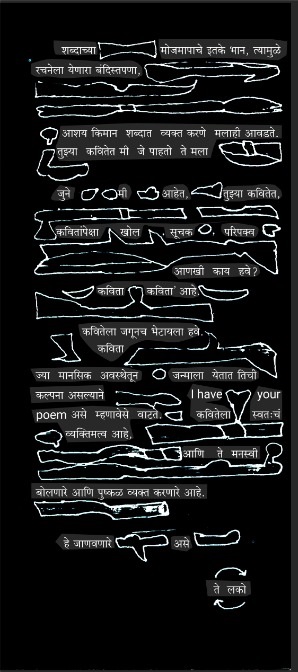 शब्दाच्या मोजमापाचे इतके भान, त्यामुळे
रचनेला येणारा बंदिस्तपणा,
आशय किमान शब्दात व्यक्त करणे मलाही आवडते.
तुझ्या कवितेत मी जे पाहतो ते मला
जुने मी आहेत, तुझ्या कवितेत,
कवितांपेक्षा खोल सूचक परिपक्व
आणखी काय हवे?
कविता कविता आहे.
कवितेला जगूनच भेटायला हवे.
कविता
ज्या मानसिक अवस्थेतून जन्माला येतात तिची
कल्पना असल्याने I have your
poem असे म्हणावेसे वाटते. कवितेला स्वतःचं
व्यक्तिमत्व आहे,
आणि ते मनस्वी
बोलणारे आणि पुष्कळ व्यक्त करणारे आहे.
हे जाणवणारे असे
ते लको